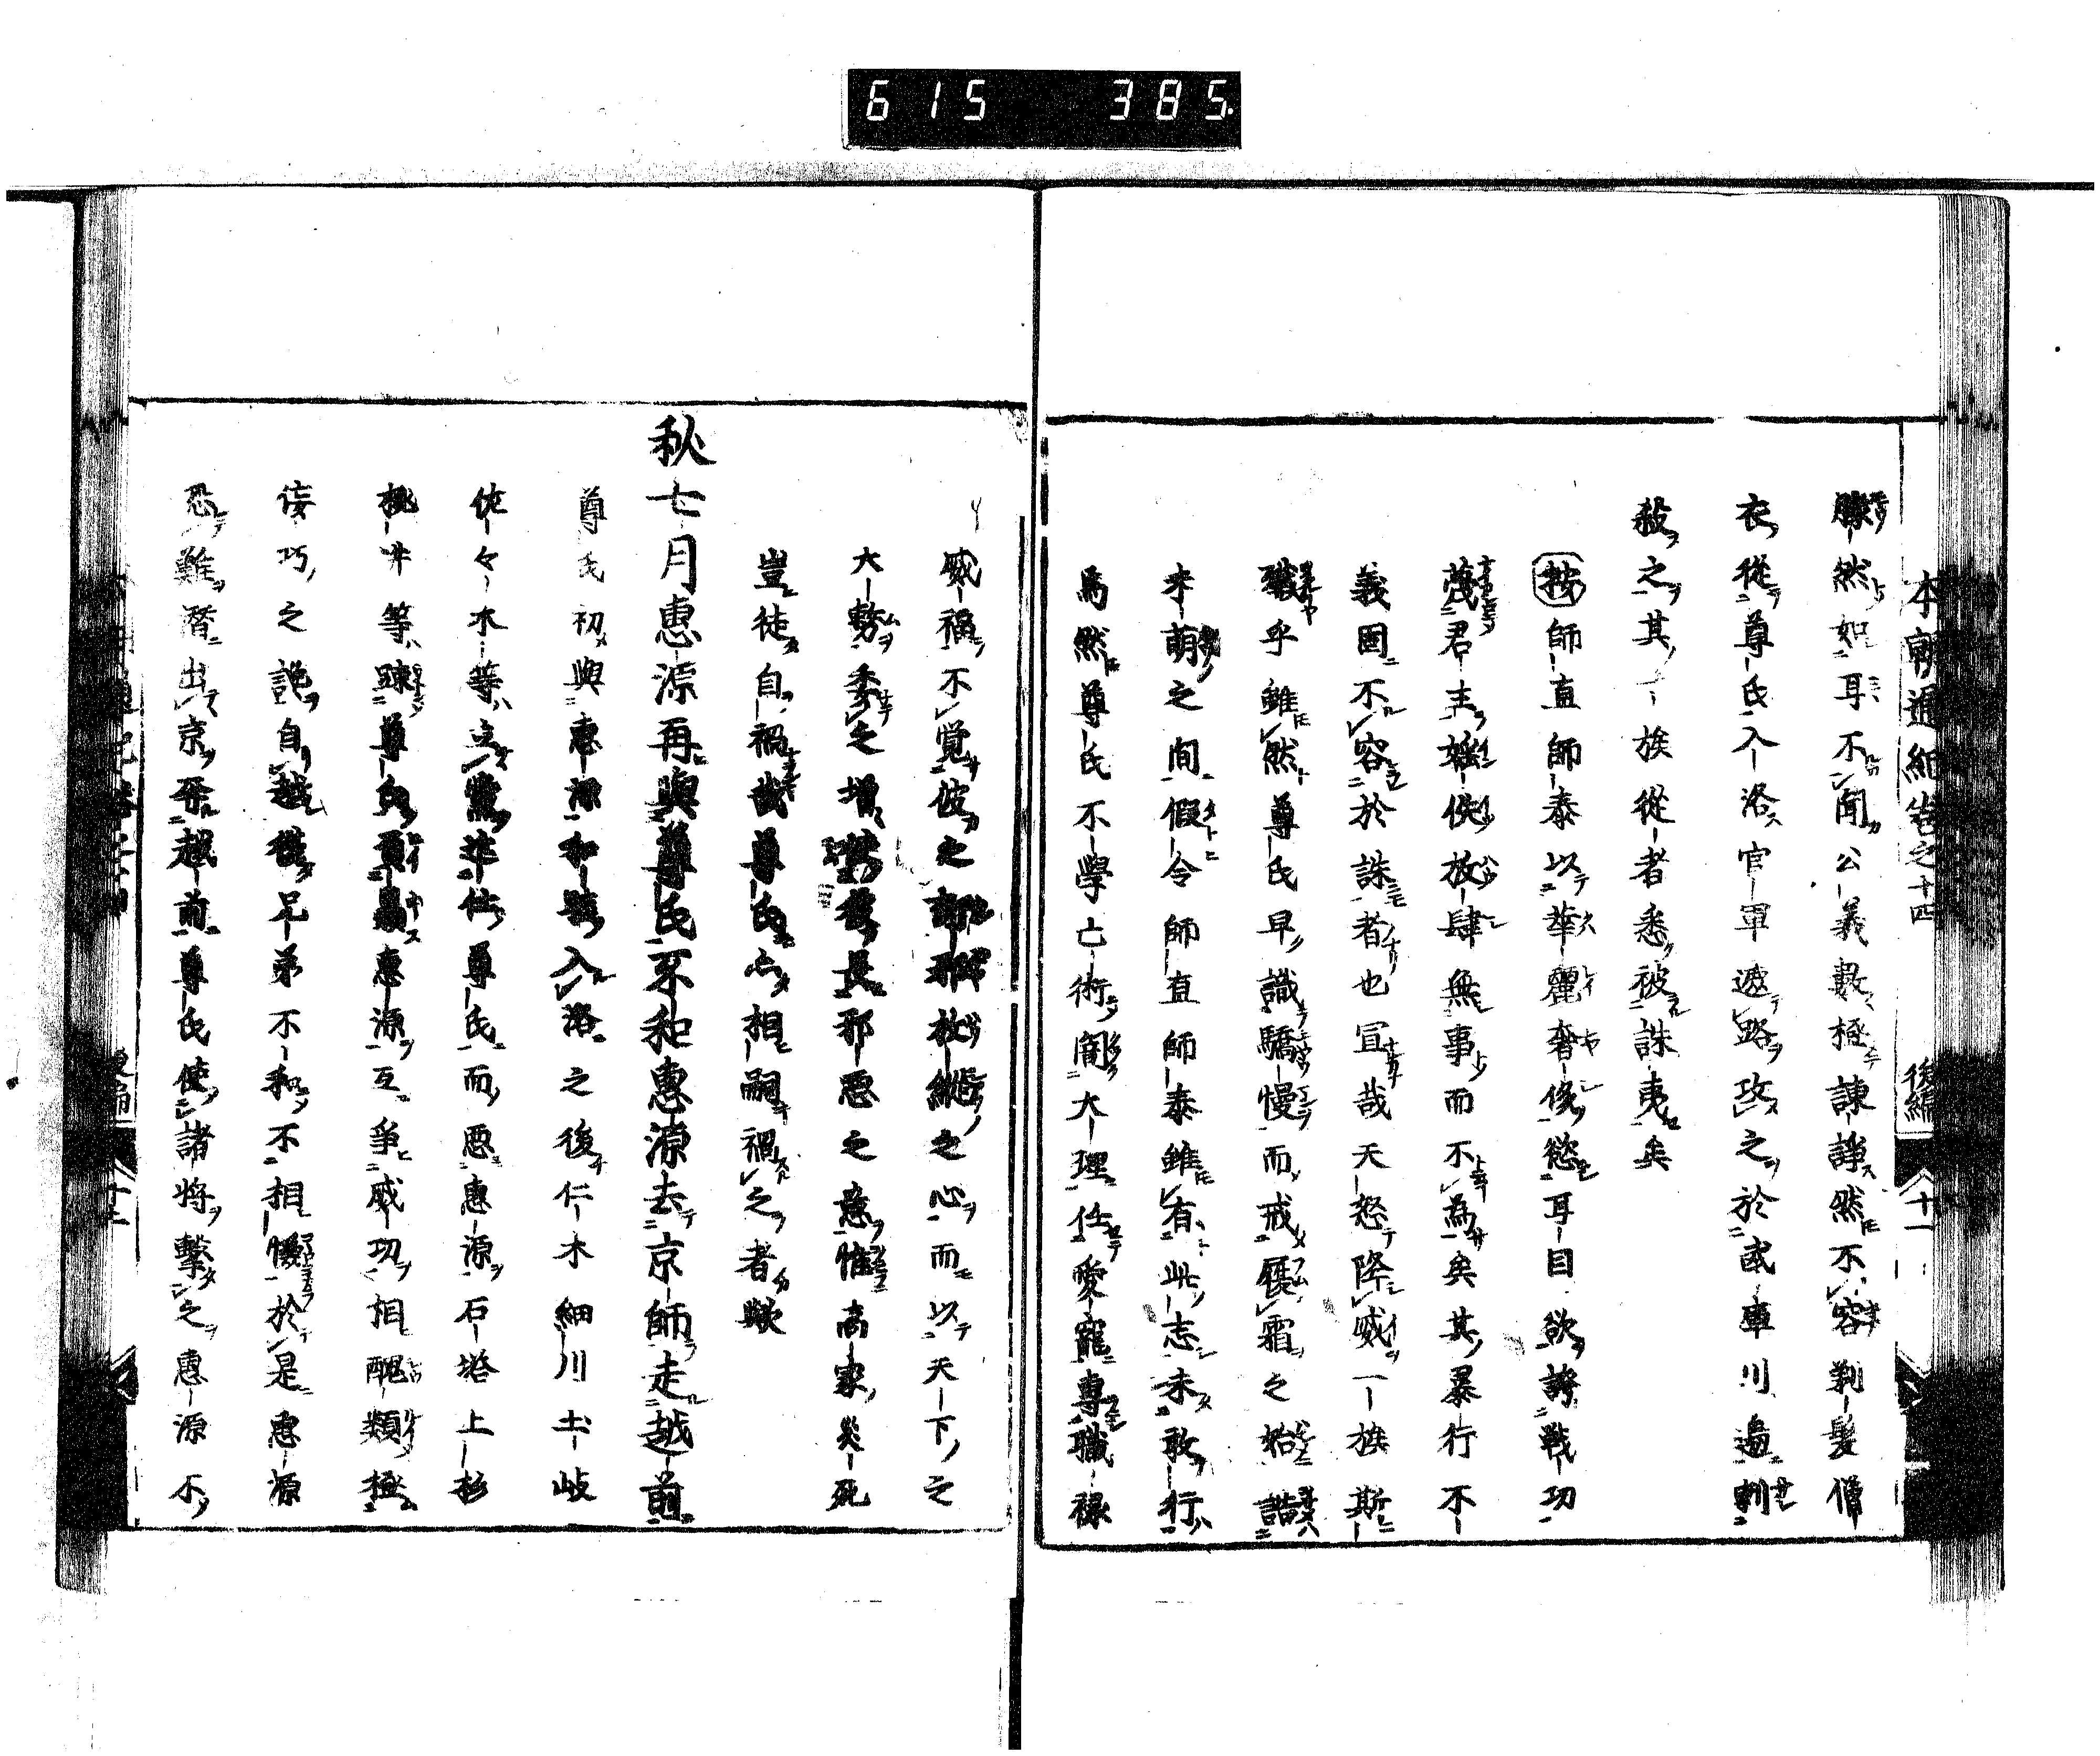 615 385
本朝通紀卷之十四 後編 十一
然如耳不聞公義數極諫諍然不容剃髮僧
衣從尊氏入洛官軍遮路攻之於武車川邉
殺之其一族從者悉被誅夷矣
按師直師泰以華麗奢侈慾耳目欲誇戰功
蔑君主婬佚放肆無事而不為矣其暴行不
義固不容於誅者也宜哉天怒降威一族斯
殲乎雖然尊氏早識驕慢而戒履霜之始詰
未萌之間假令師直師泰雖有此志未敢行
焉然尊氏不學亡術闇大理任愛寵專職祿
威福不覚彼之放縱之心而以天下之
大勢委之增長邪惡之意惟高家災死
豈徒自禍哉尊氏亦相嗣禍之者歟
秋七月惠源再與尊氏不和惠源去京師走越前
尊氏初與惠源和睦入洛之後仁木細川土岐
佐々木等立黨尊氏而惡惠源石塔上杉
桃井等疎尊氏惠源互爭威功相醜類極
佞巧之讒自越從兄弟不和不相於是惠源
恐難潛出京奔越前尊氏使諸将擊之惠源不